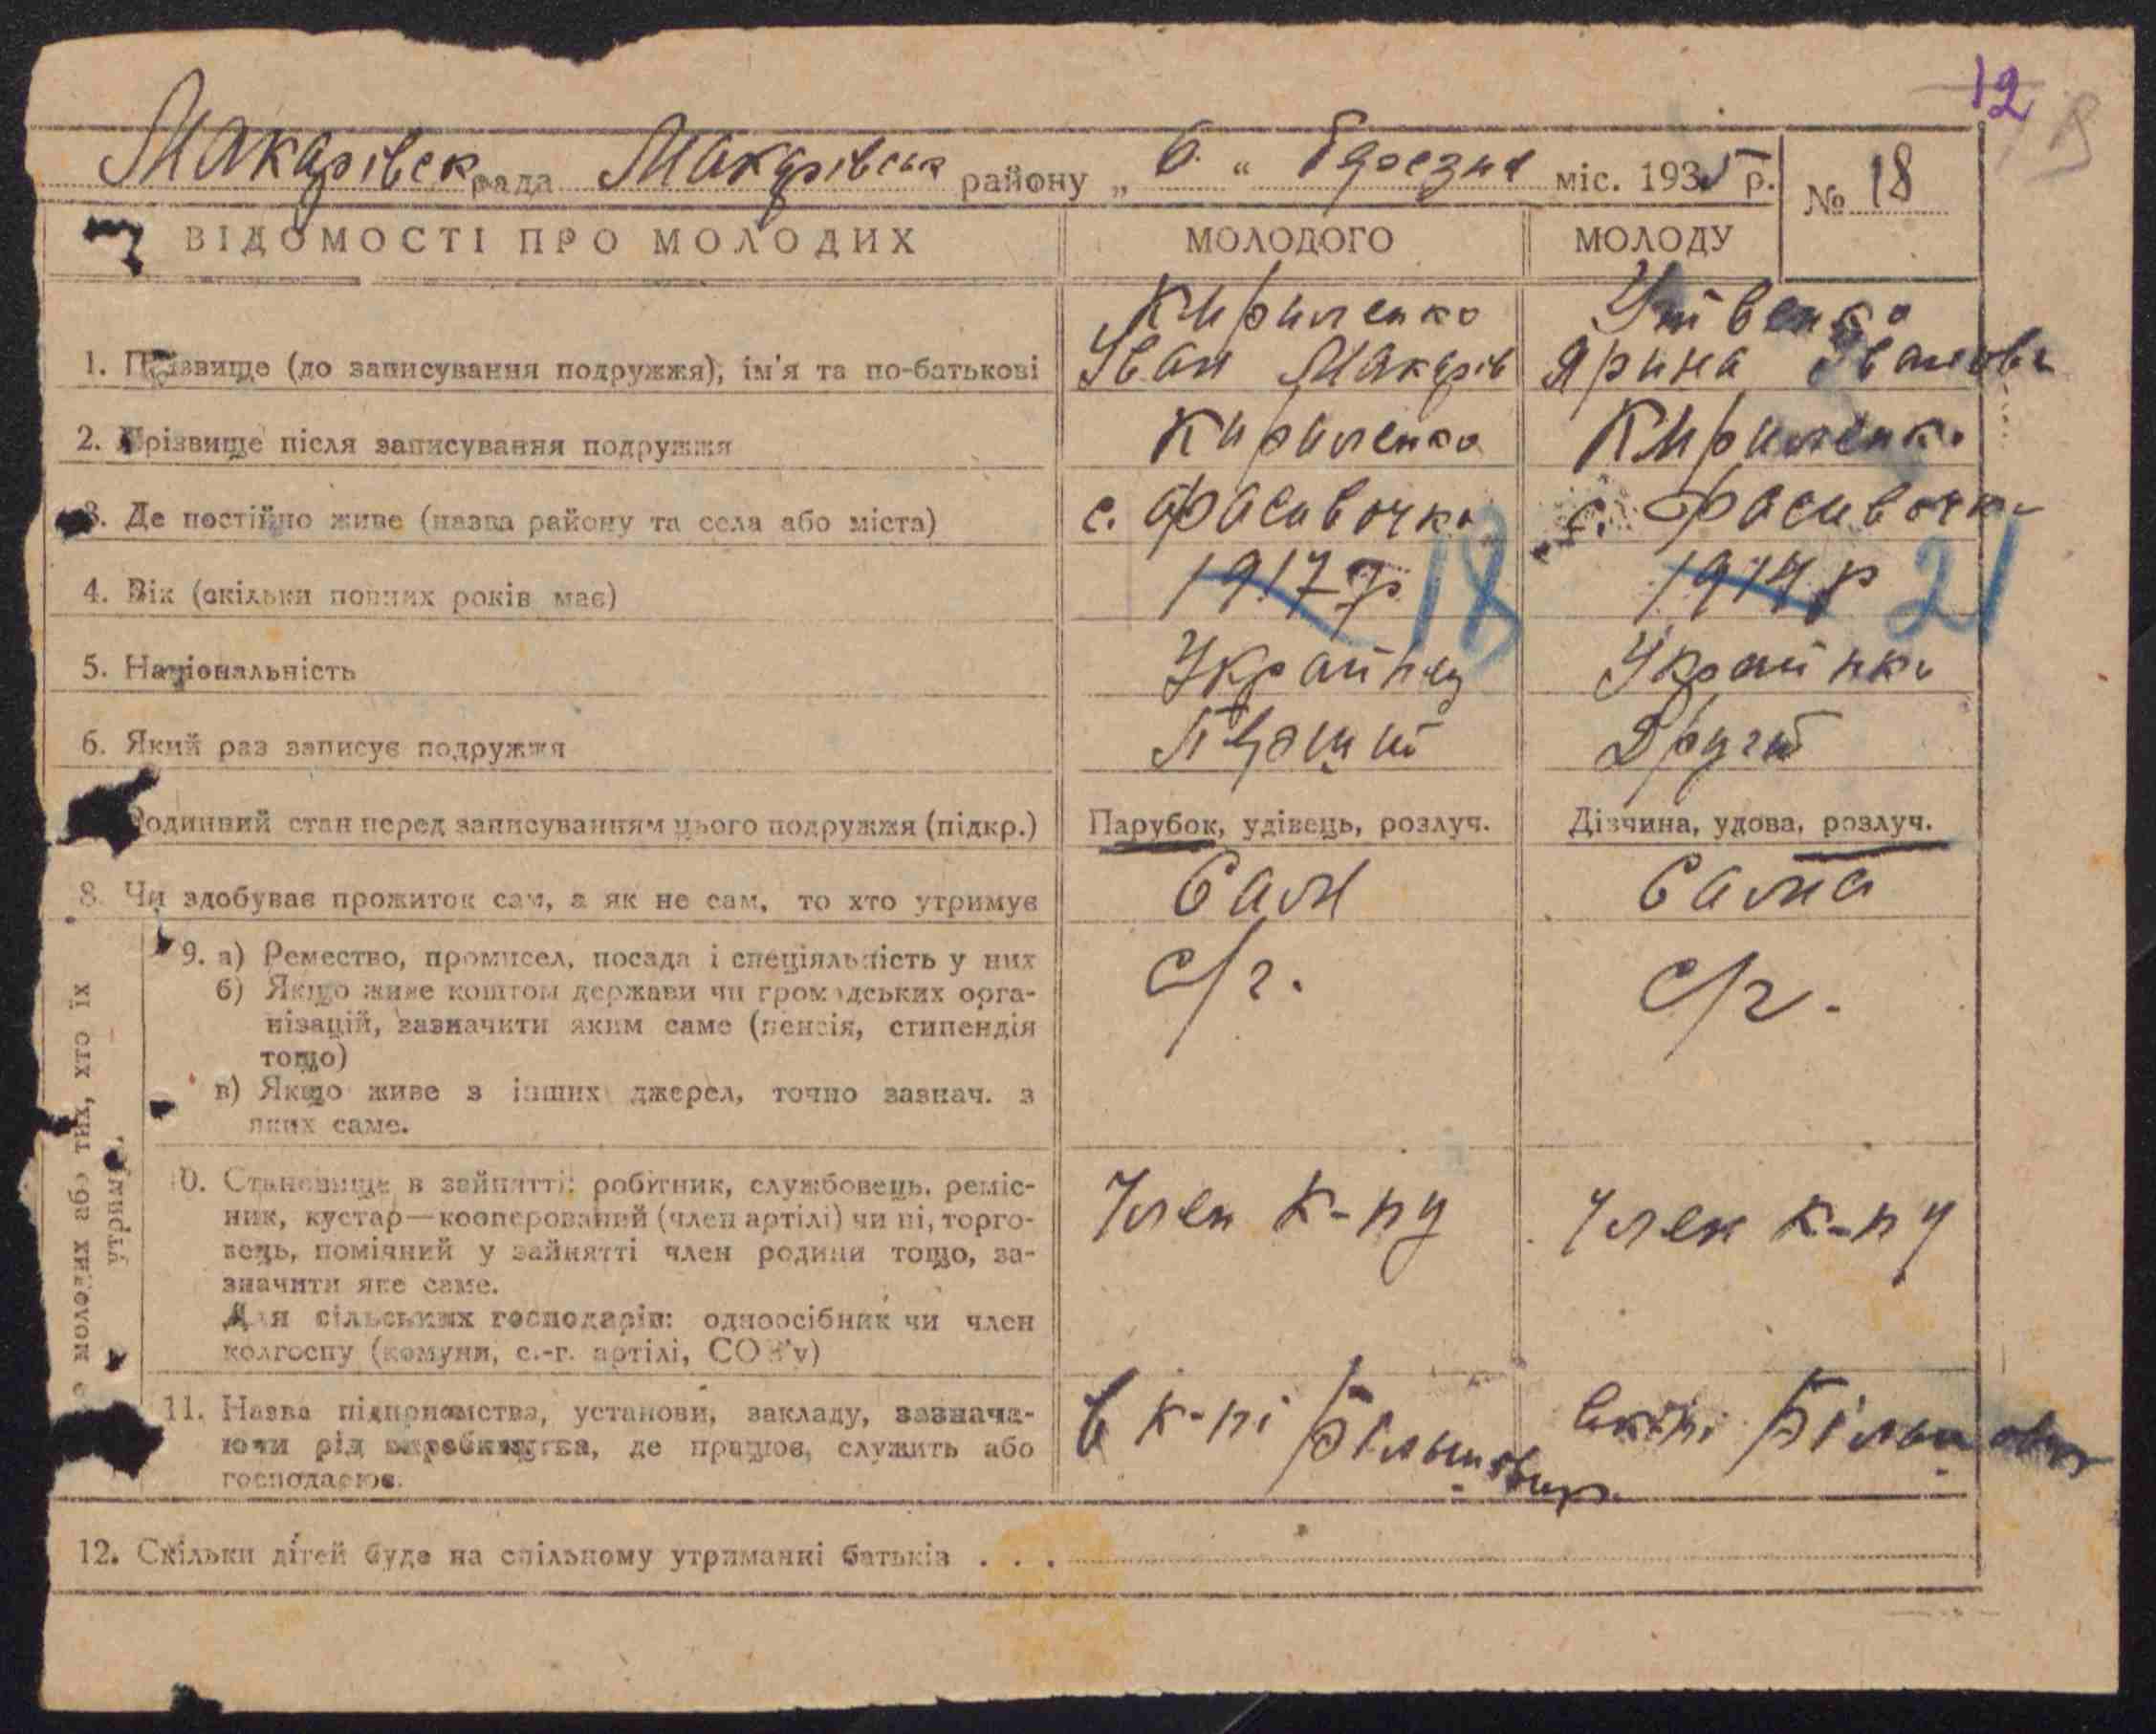 12
Макарівськ рада Макарівськ району „ 6 “ березня міс. 1935 р. № 18
ВІДОМОСТІ ПРО МОЛОДИХ МОЛОДОГО МОЛОДУ
Кириленко
1. Прізвище (до записування подружжя), ім'я та по-батькові Іван Макарів Ярина Іванова
2. Прізвище після записування подружжя Кириленко Кириленко
3. Де постійно живе (назва району та села або міста) с. Фасівочка с. Фасівочка
4. Вік (скільки повних років має) 1917 р 18 1914 р 21
5. Національність Українец Українка
6. Який раз записує подружжя Перший Другий
Родинний стан перед записуванням цього подружжя (підкр.) Парубок, удівець, розлуч. Дівчина, удова, розлуч.
8. Чи здобуває прожиток сам, а як не сам, то хто утримує Сам Сама
9. а) Ремество, промисел, посада і спеціяльність у них с/г. с/г.
б) Якщо живе коштом держави чи громадських орга-
нізацій, зазначити яким саме (пенсія, стипендія
тощо)
в) Якщо живе з інших джерел, точно зазнач. з
яких саме.
0. Становище в зайнятті: робітник, службовець, реміс- Член к-пу Член к-пу
ник, кустар—кооперований (член артілі) чи ні, торго-
вець, помічний у зайнятті член родини тощо, за-
значити яке саме.
Для сільських господарів: одноосібник чи член
колгоспу (комуни, с.-г. артілі, СОЗ'у)
11. Назва підприємства, установи, закладу, зазнача- в к-пі Більшовик
ючи рід виробництва, де працює, служить або
господарює.
12. Скільки дітей буде на спільному утриманні батьків . . .
молодих або тих, хто їх
утримує